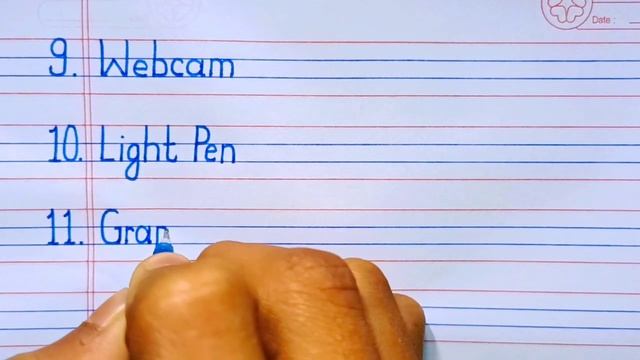 Date :
9. Webcam
10. Light Pen
11. Gra